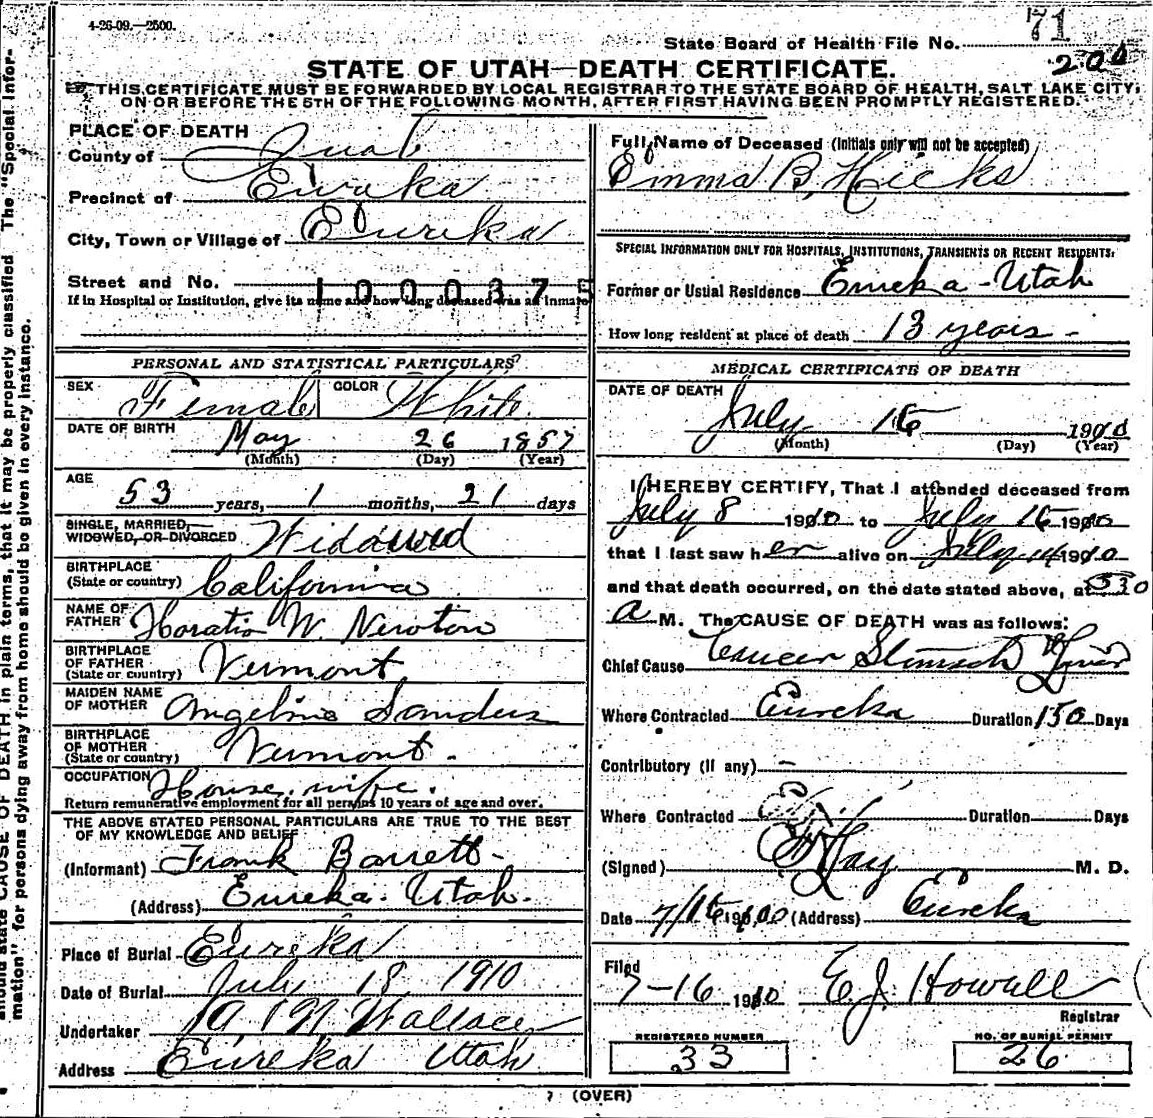 4-26-09.—2500.
71
State Board of Health File No.
200
STATE OF UTAH—DEATH CERTIFICATE.
THIS CERTIFICATE MUST BE FORWARDED BY LOCAL REGISTRAR TO THE STATE BOARD OF HEALTH, SALT LAKE CITY,
ON OR BEFORE THE 5TH OF THE FOLLOWING MONTH, AFTER FIRST HAVING BEEN PROMPTLY REGISTERED.
PLACE OF DEATH
County of Juab
Precinct of Eureka
City, Town or Village of Eureka
Street and No. 1000375
If in Hospital or Institution, give its name and how long deceased was an inmate
PERSONAL AND STATISTICAL PARTICULARS
SEX Female COLOR White
DATE OF BIRTH May 26 1857
(Month) (Day) (Year)
AGE 53 years, 1 months, 21 days
SINGLE, MARRIED,
WIDOWED, OR DIVORCED Widowed
BIRTHPLACE
(State or country) California
NAME OF
FATHER Horatio W. Newton
BIRTHPLACE
OF FATHER
(State or country) Vermont
MAIDEN NAME
OF MOTHER Angeline Sanders
BIRTHPLACE
OF MOTHER
(State or country) Vermont.
OCCUPATION House wife.
Return remunerative employment for all persons 10 years of age and over.
THE ABOVE STATED PERSONAL PARTICULARS ARE TRUE TO THE BEST
OF MY KNOWLEDGE AND BELIEF
(Informant) Frank Barrett
(Address) Eureka. Utah.
Place of Burial Eureka
Date of Burial July 18 1910
Undertaker Wallace
Address Eureka Utah
Full Name of Deceased (Initials only will not be accepted)
Emma B. Hicks
SPECIAL INFORMATION ONLY FOR HOSPITALS, INSTITUTIONS, TRANSIENTS OR RECENT RESIDENTS:
Former or Usual Residence Eureka - Utah
How long resident at place of death 13 years -
MEDICAL CERTIFICATE OF DEATH
DATE OF DEATH
July 16 1910
(Month) (Day) (Year)
I HEREBY CERTIFY, That I attended deceased from
July 8 1910 to July 16 1910
that I last saw her alive on July 14 1910
and that death occurred, on the date stated above, at 530
a M. The CAUSE OF DEATH was as follows:
Chief Cause Cancer Stomach & Liver
Where Contracted Eureka Duration 150 Days
Contributory (If any) —
Where Contracted Duration Days
(Signed) M. D.
Date 7/16 1910 (Address) Eureka
Filed
7-16 1910 E. J. Howell
Registrar
REGISTERED NUMBER
33
NO. OF BURIAL PERMIT
26
(OVER)
CAUSE OF DEATH in plain terms, that it may be properly classified The "Special Infor-
mation" for persons dying away from home should be given in every instance.